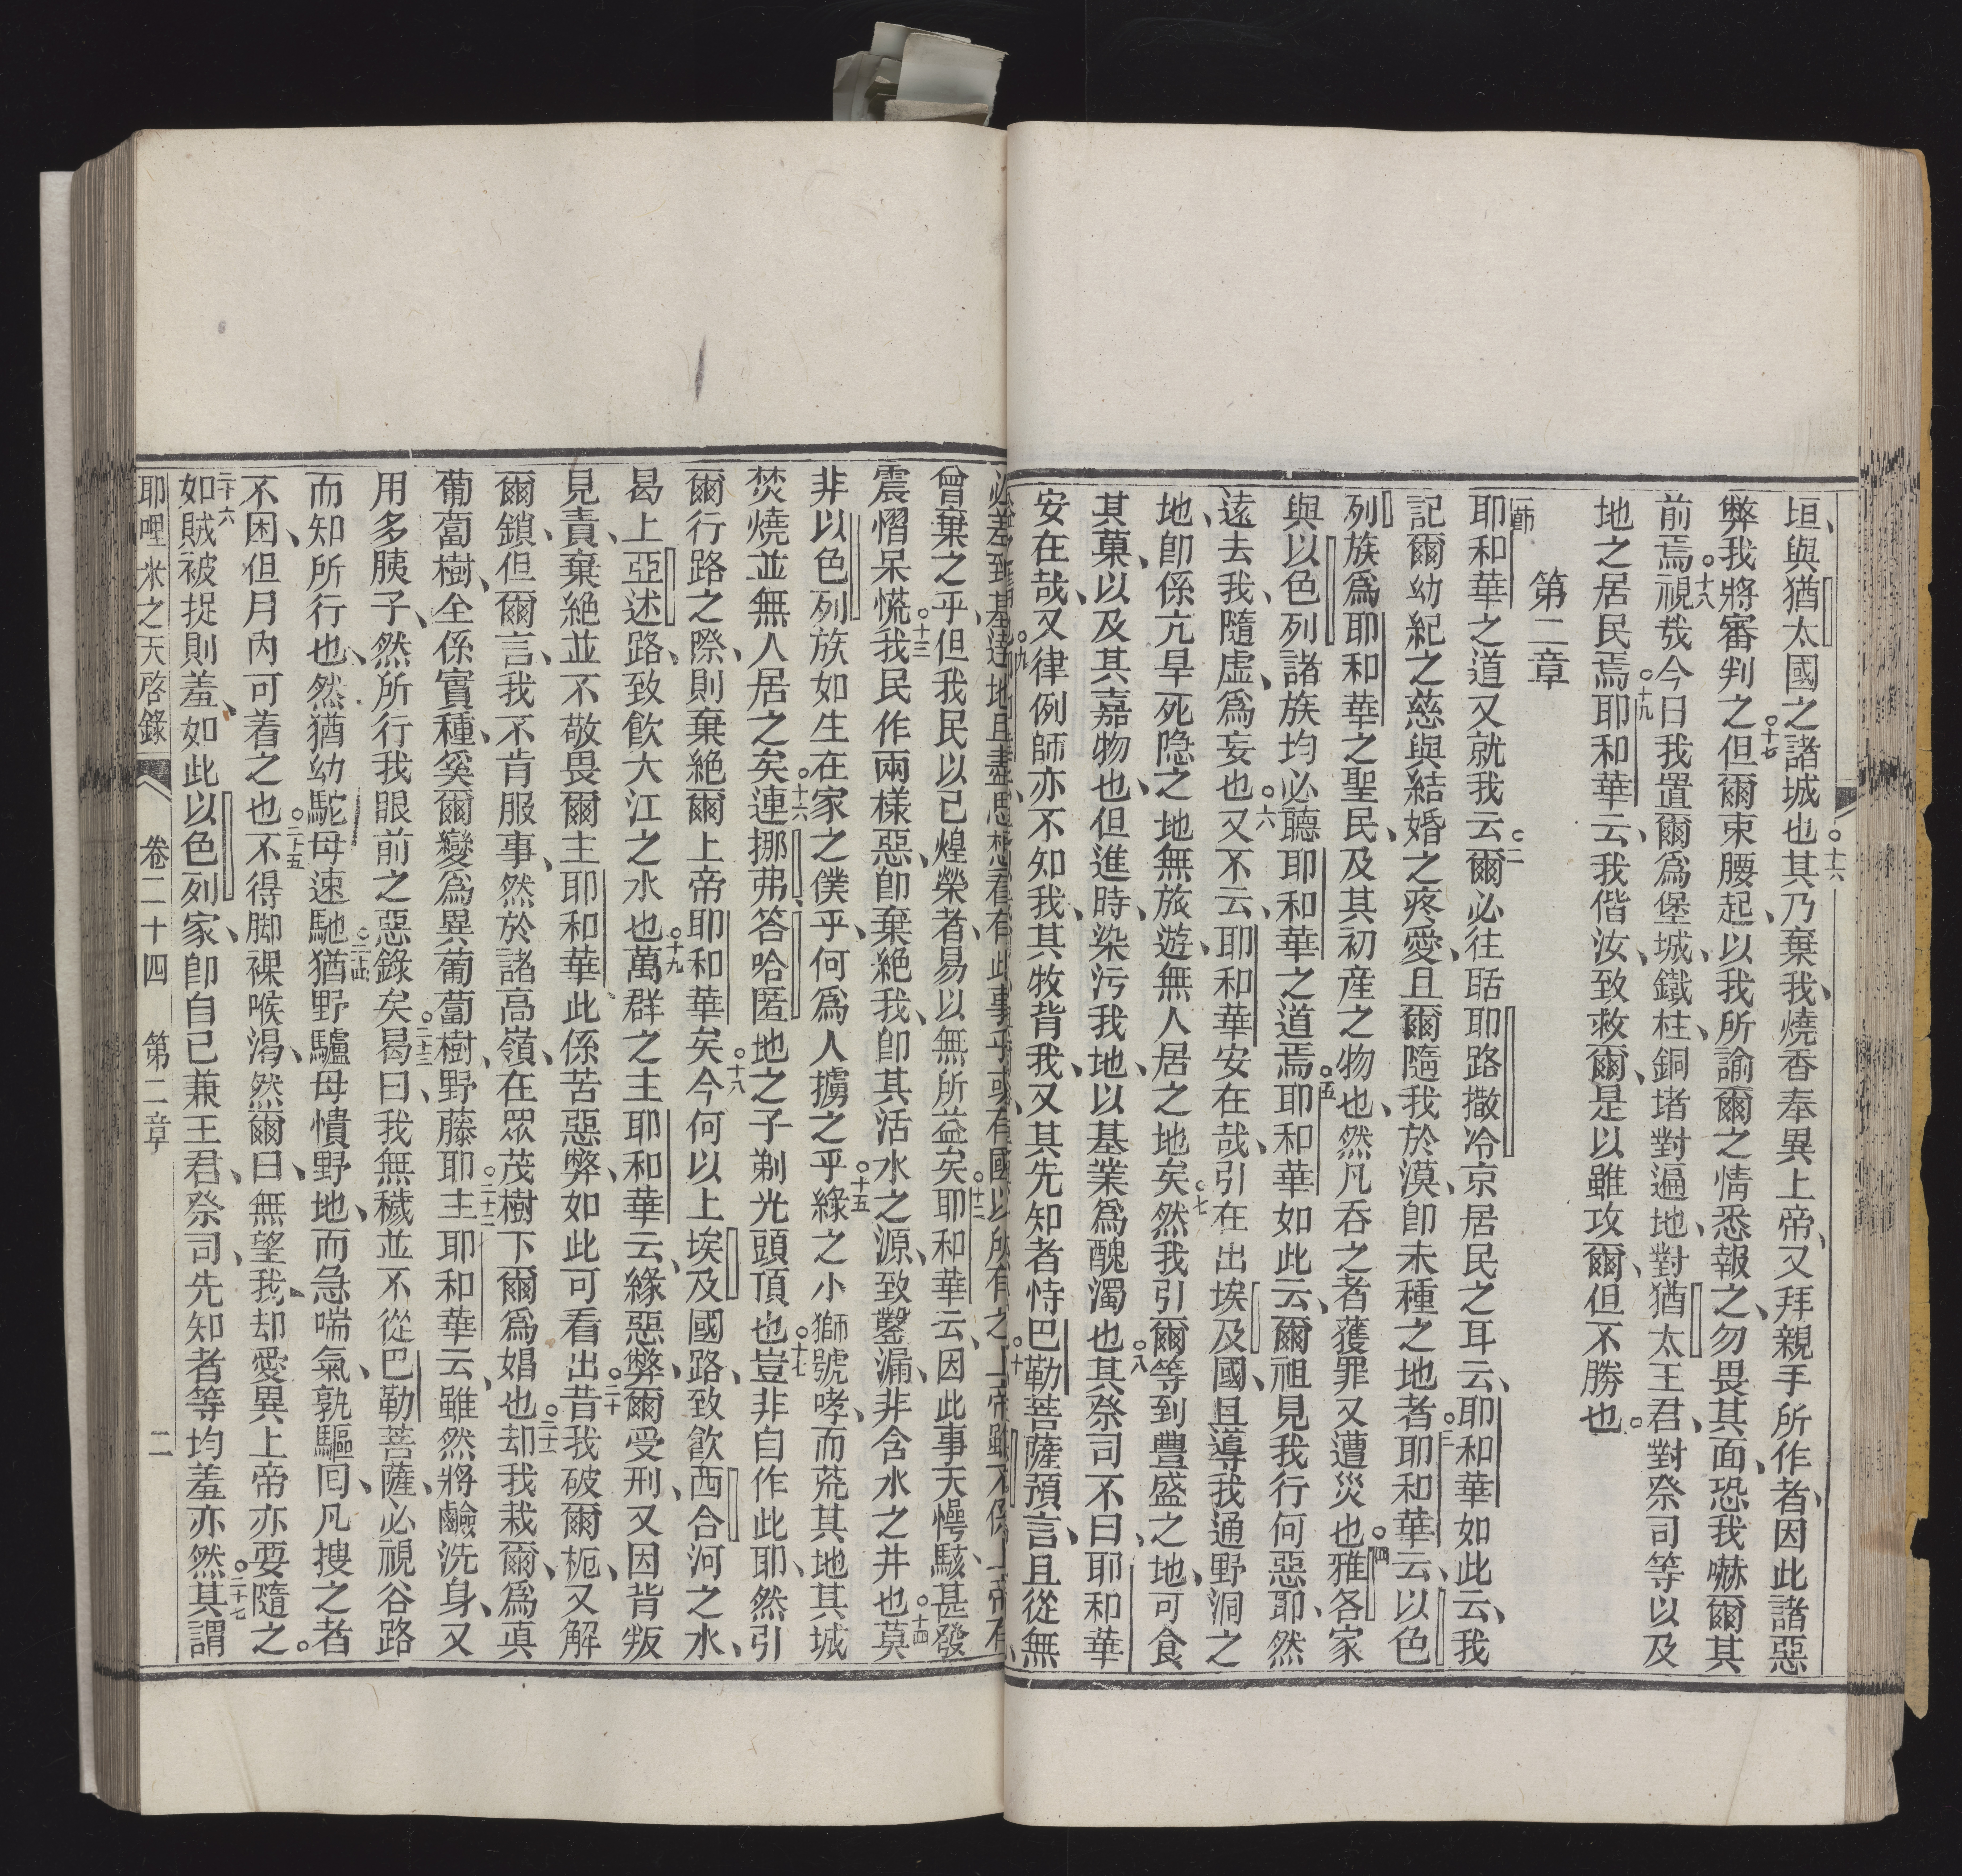 垣、與猶太國之諸城也。十六其乃棄我、燒香奉異上帝、又拜親手所作者、因此諸惡
弊我將審判之。十七但爾束腰起、以我所諭爾之情悉報之、勿畏其面、恐我嚇爾其
前焉。十八視哉今日我置爾爲堡城、鐵柱、銅堵對遍地、對猶太王君、對祭司等以及
地之居民焉。十九耶和華云、我偕汝、致救爾、是以雖攻爾、但不勝也。
第二章
一節耶和華之道又就我云。二爾必往聒耶路撒冷京居民之耳云、耶和華如此云、我
記爾幼紀之慈與結婚之疼愛、且爾隨我於漠、即未種之地者。三耶和華云、以色
列族爲耶和華之聖民、及其初產之物也、然凡吞之者獲罪又遭災也。四雅各家
與以色列諸族均必聽耶和華之道焉。五耶和華如此云、爾祖見我行何惡耶、然
遠去我、隨虛、爲妄也。六又不云、耶和華安在哉、引在出埃及國、且導我通野洞之
地、卽係亢旱死隐之地無旅遊、無人居之地矣。七然我引爾等到豐盛之地、可食
其菓、以及其嘉物也、但進時、染污我地、以基業爲醜濁也。八其祭司不曰、耶和華
安在哉、又律例師亦不知我、其牧背我、又其先知者恃巴勒菩薩預言、且從無
曾棄之乎、但我民以已煌榮者、易以無所益矣。十二耶和華云、因此事天愕駭、甚發
震慴呆慌。十三我民作兩樣惡、卽棄絕我、卽其活水之源、致鑿漏、非含水之井也。十四莫
非以色列族如生在家之僕乎、何爲人擄之乎。十五緣之小獅號哮、而荒其地其城
焚燒並無人居之矣。十六連挪弗、答哈匿地之子剃光頭頂也。十七豈非自作此耶、然引
爾行路之際、則棄絕爾上帝耶和華矣。十八今何以上埃及國路、致飮西合河之水、
曷上亞述路、致飮大江之水也。十九萬群之主耶和華云、緣惡弊、爾受刑、又因背叛
見責、棄絕並不敬畏爾主耶和華、此係苦惡弊、如此可看出。二十昔我破爾枙、又解
爾鎖、但爾言、我不肯服事、然於諸高嶺、在眾茂樹下爾爲娼也。二十一却我栽爾、爲眞
葡萄樹、全係實種、奚爾變爲異葡萄樹、野藤耶。二十二主耶和華云、雖然將鹼洗身、又
用多胰子、然所行我眼前之惡錄矣。二十三曷曰、我無穢並不從巴勒菩薩、必視谷路
而知所行也、然猶幼駝母速馳。二十四猶野驢母慣野地、而急喘氣、孰驅囘、凡搜之者
不困、但月內可着之也。二十五不得脚裸喉渴、然爾曰、無望、我却愛異上帝亦要隨之。
二十六如賊被捉則羞、如此以色列家、卽自已兼王君、祭司、先知者等均羞亦然。二十七其謂
耶哩米之天啓錄 卷二十四 第二章 二